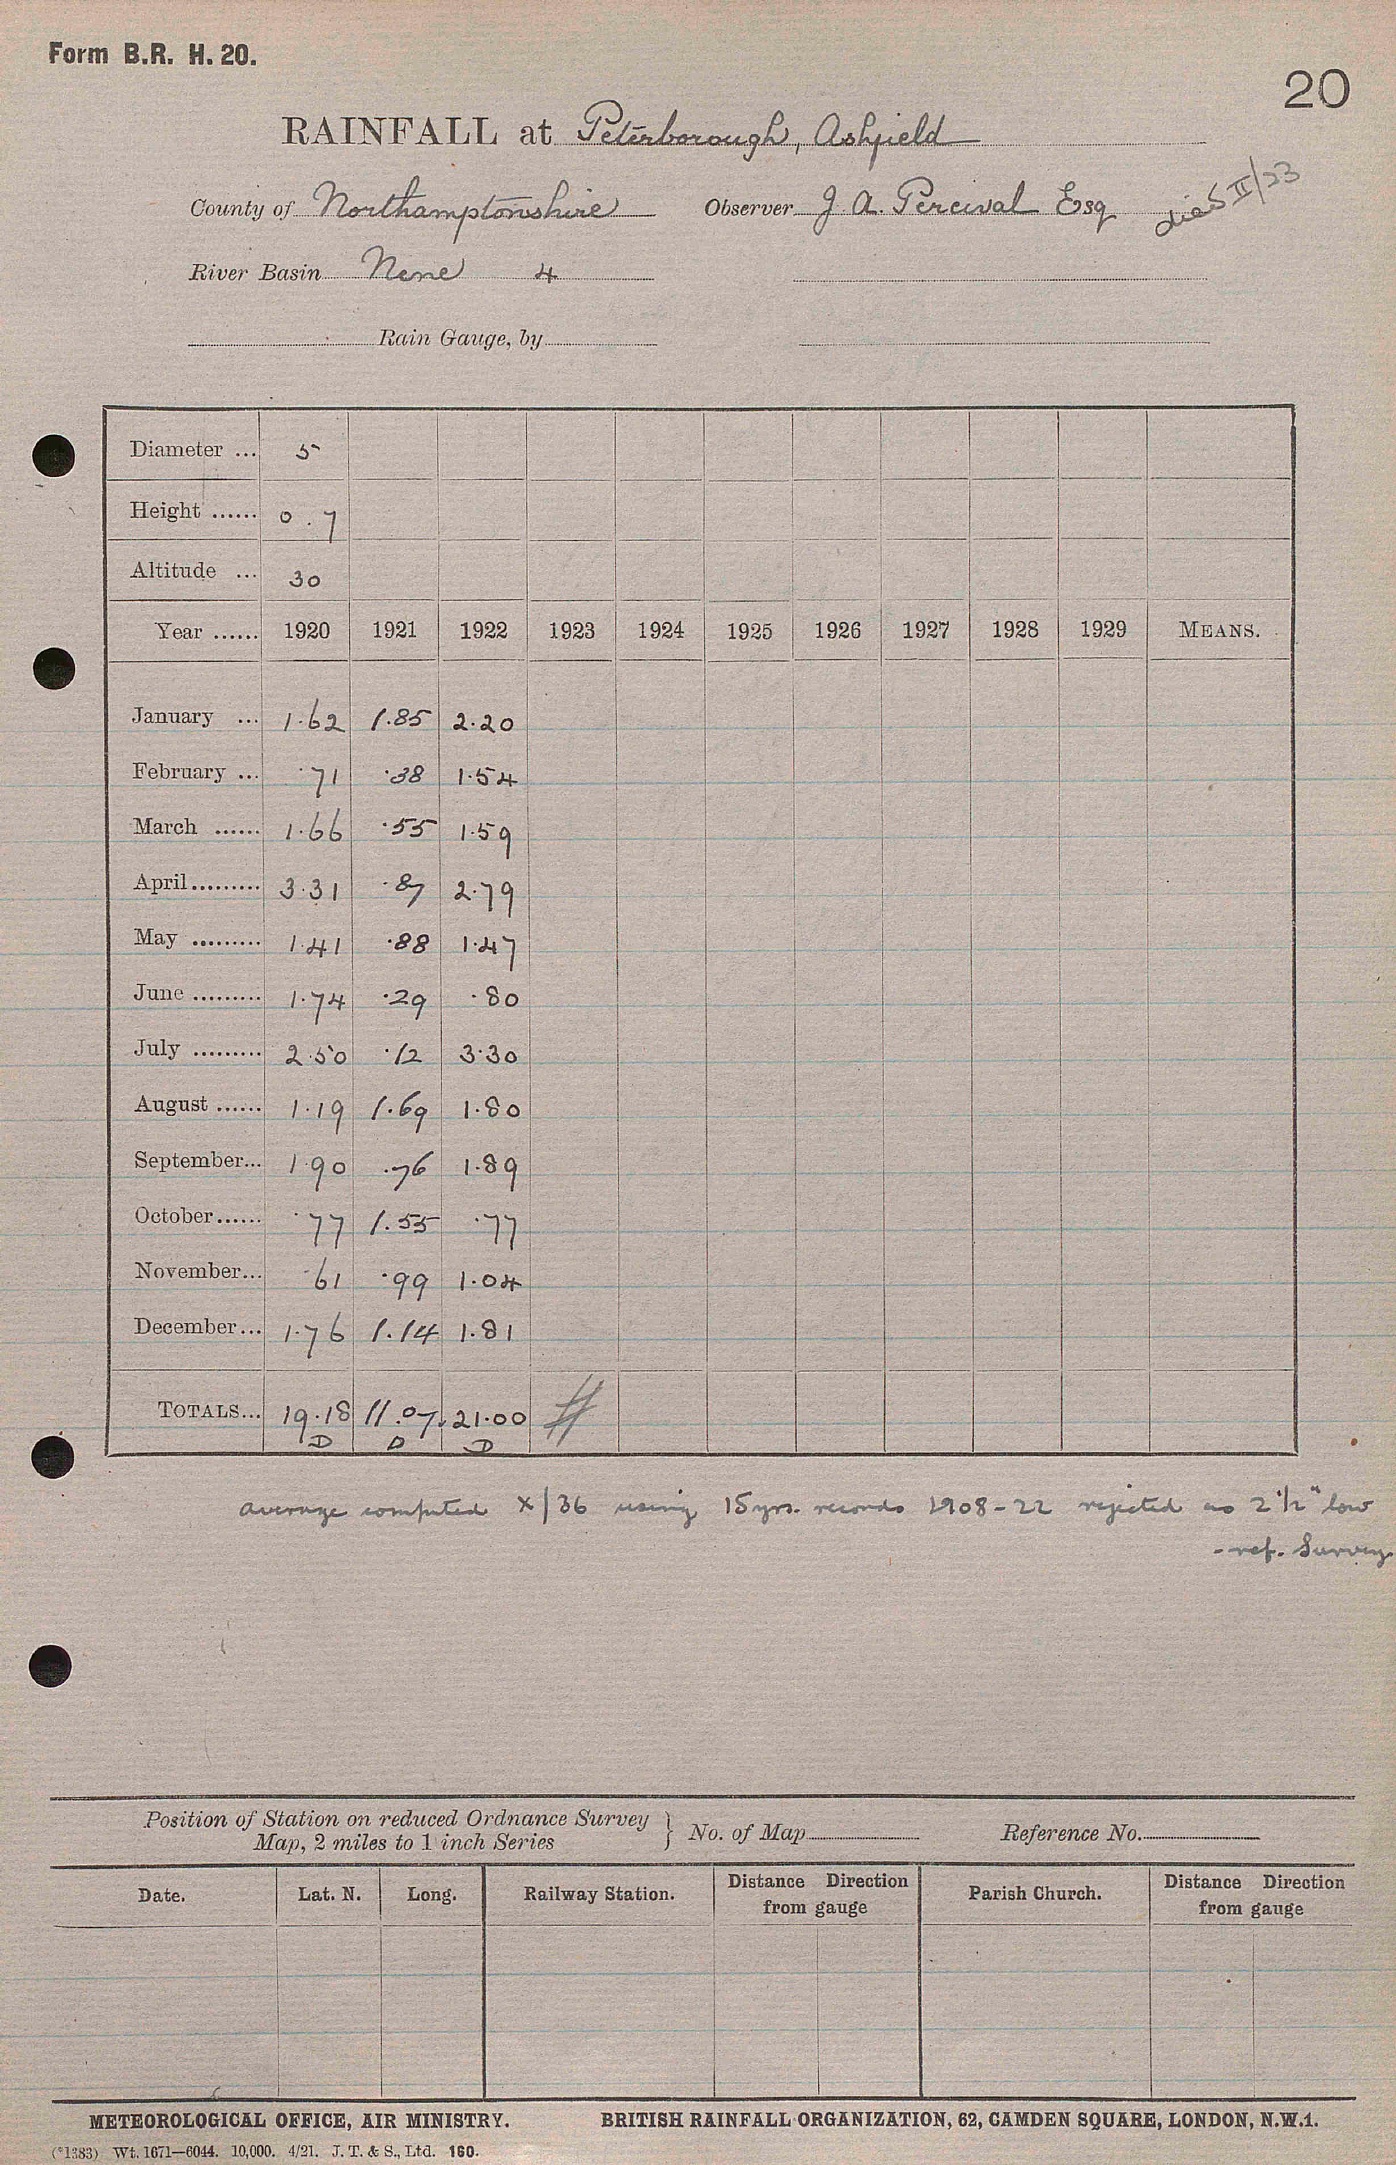 Form B.R. H. 20.
20
RAINFALL at Peterborough, Ashfield
County of Northamptonshire Observer J. A. Percival Esq died II/23
River Basin Nene 4
Rain Gauge, by
Diameter ... 5
Height ...... 0.7
Altitude ... 30
Year ...... 1920 1921 1922 1923 1924 1925 1926 1927 1928 1929 MEANS.
January ... 1.62 1.85 2.20
February ... .71 .38 1.54
March ...... 1.66 .55 1.59
April......... 3.31 .87 2.79
May ......... 1.41 .88 1.47
June ......... 1.74 .29 .80
July ......... 2.50 .12 3.30
August ...... 1.19 1.69 1.80
September... 1.90 .76 1.89
October...... .77 1.55 .77
November... .61 .99 1.04
December... 1.76 1.14 1.81
TOTALS... 19.18 11.07 21.00
D D D
average computed X/36 using 15 yrs. records 1908-22 rejected as 2 1/2" low
- ref. Survey
Position of Station on reduced Ordnance Survey
Map, 2 miles to 1 inch Series } No. of Map Reference No.
Date. Lat. N. Long. Railway Station. Distance Direction from gauge Parish Church. Distance Direction from gauge
METEOROLOGICAL OFFICE, AIR MINISTRY. BRITISH RAINFALL ORGANIZATION, 62, CAMDEN SQUARE, LONDON, N.W.1.
(*1383) Wt. 1671—6044. 10,000. 4/21. J. T. & S., Ltd. 160.